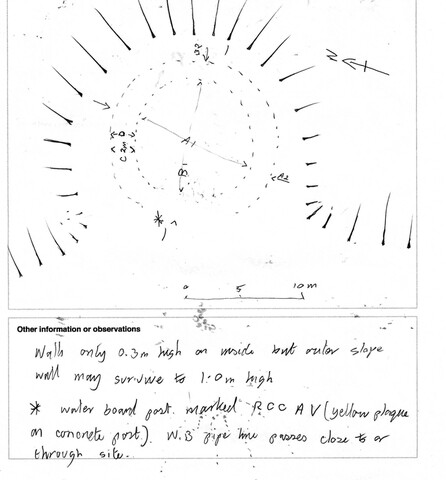 N
A1
B1
C 2m D
0 5 10m
Other information or observations
Walls only 0.3m high on inside but outer slope
wall may survive to 1.0m high
* water board post marked RCC AV (yellow plaque
on concrete post). W.B pipe line passes close to or
through site.